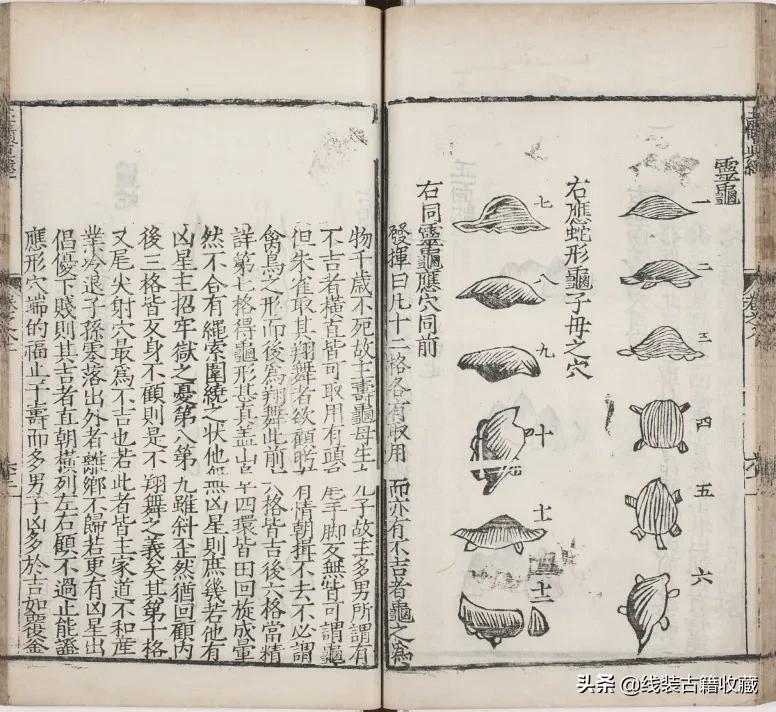 靈龜
一
二
三
四
五
六
右應蛇形龜子母之穴
七
八
九
十
十一
十二
右同靈龜應穴同前
發揮曰凡十二格各有取用而亦有不吉者龜之為
物千歲不死故主壽龜母生九子故主多男所謂有
不吉者橫直皆可取用有頭尾手脚交無皆可謂龜
但朱雀取其翔舞者欲顧盼有情朝揖不去不必謂
禽鳥之形而後為翔舞此前六格皆吉後六格當精
詳第七格得龜形甚真蓋山四環皆田回旋成暈
然不合有繩索圍繞之狀他無凶星則庶幾若他有
凶星主招牢獄之憂第八第九雖斜歪然猶回顧內
後三格皆交身不顧則是不翔舞之義矣其第十格
又尾尖射穴最為不吉也若此者皆主家道不和産
業冷退子孫寒落出外者離鄉不歸若更有凶星出
倡優下賤則其吉者直朝橫列左右顧不過止能證
應形穴端的福止于壽而多男子凶多於吉如覆釜
头条 @线装古籍收藏